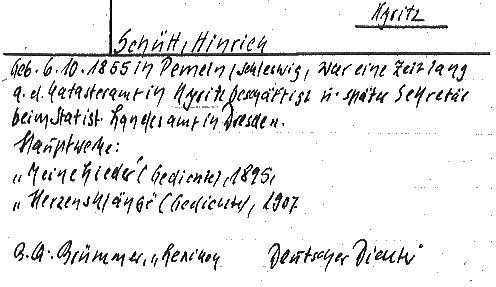 Kyritz
Schütt, Hinrich
Geb. 6.10.1855 in Pemeln, Schleswig, war eine Zeit lang
a.d. Katasteramt in Kyritz beschäftigt u. später Sekretär
beim Statist. Landesamt in Dresden.
Hauptwerke:
„Meine Lieder" (Gedichte), 1895,
„Herzensklänge" (Gedichte), 1907
Brümmer, „Lexikon Deutscher Dichter